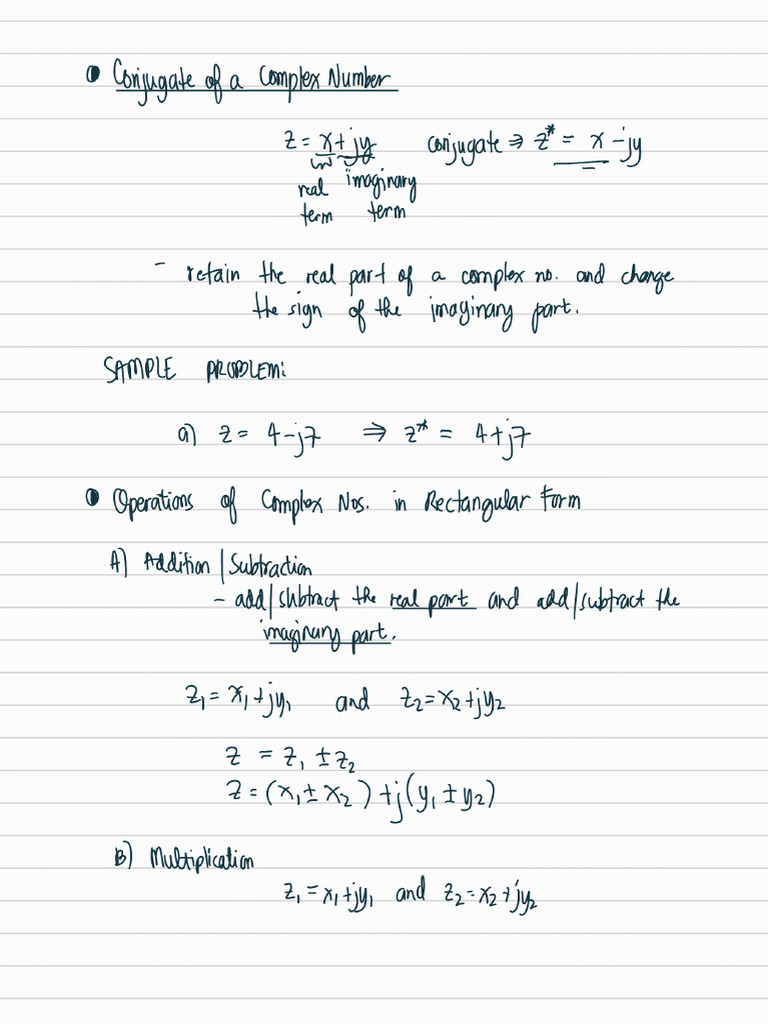 • Conjugate of a Complex Number
z = x + jy conjugate ⇒ z* = x - jy
real imaginary
term term
- retain the real part of a complex no. and change
the sign of the imaginary part.
SAMPLE PROBLEM:
a) z = 4-j7 ⇒ z* = 4+j7
• Operations of Complex Nos. in Rectangular Form
A) Addition | Subtraction
- add/subtract the real part and add/subtract the
imaginary part.
z₁ = x₁+jy₁ and z₂=x₂+jy₂
z = z₁ ± z₂
z = (x₁ ± x₂) + j(y₁ ± y₂)
B) Multiplication
z₁ = x₁+jy₁ and z₂ = x₂+jy₂